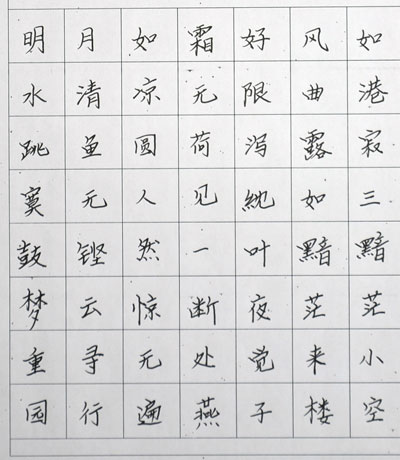 明月如霜好风如
水清凉无限曲港
跳鱼圆荷泻露寂
寞无人见紞如三
鼓铿然一叶黯黯
梦云惊断夜茫茫
重寻无处觉来小
园行遍燕子楼空